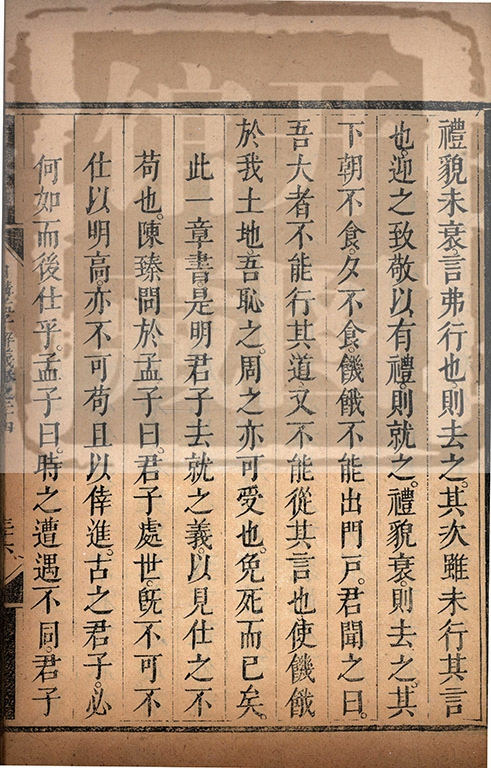 禮貌未衰言弗行也則去之其次雖未行其言
也迎之致敬以有禮則就之禮貌衰則去之其
下朝不食夕不食饑餓不能出門戶君聞之曰
吾大者不能行其道又不能從其言也使饑餓
於我土地吾恥之周之亦可受也免死而已矣
此一章書是明君子去就之義以見仕之不
苟也陳臻問於孟子曰君子處世旣不可不
仕以明高亦不可苟且以倖進古之君子必
何如而後仕乎孟子曰時之遭遇不同君子